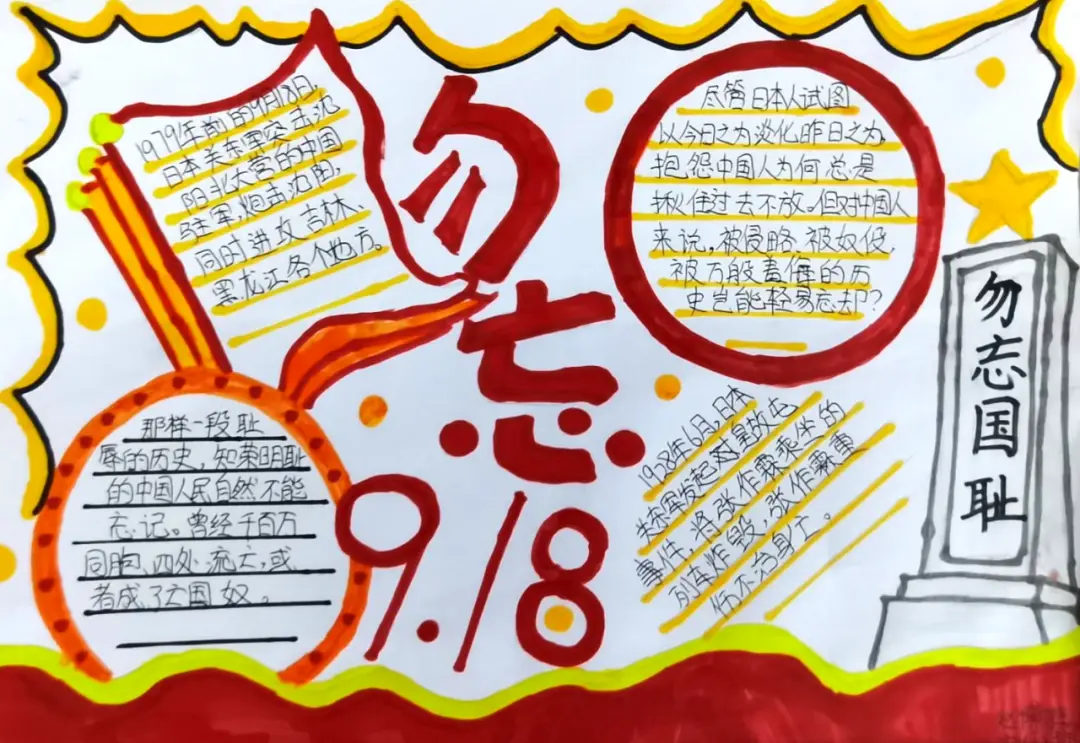 1979年前的9月18日,
日本关东军突击沈
阳北大营的中国
驻军,炮击沈阳,
同时进攻吉林、
黑龙江各个地方。
勿
忘
9.18
尽管日本人试图
以今日之为淡化昨日之为,
抱怨中国人为何总是
揪住过去不放。但对中国人
来说,被侵略、被奴役,
被万般羞侮的历
史岂能轻易忘却?
那样一段耻
辱的历史,知荣明耻
的中国人民自然不能
忘记。曾经千百万
同胞、四处流亡,或
者成了亡国奴。
1928年6月,日本
关东军发起对皇故屯
事件,将张作霖乘坐的
列车炸毁,张作霖重
伤不治身亡。
勿忘国耻